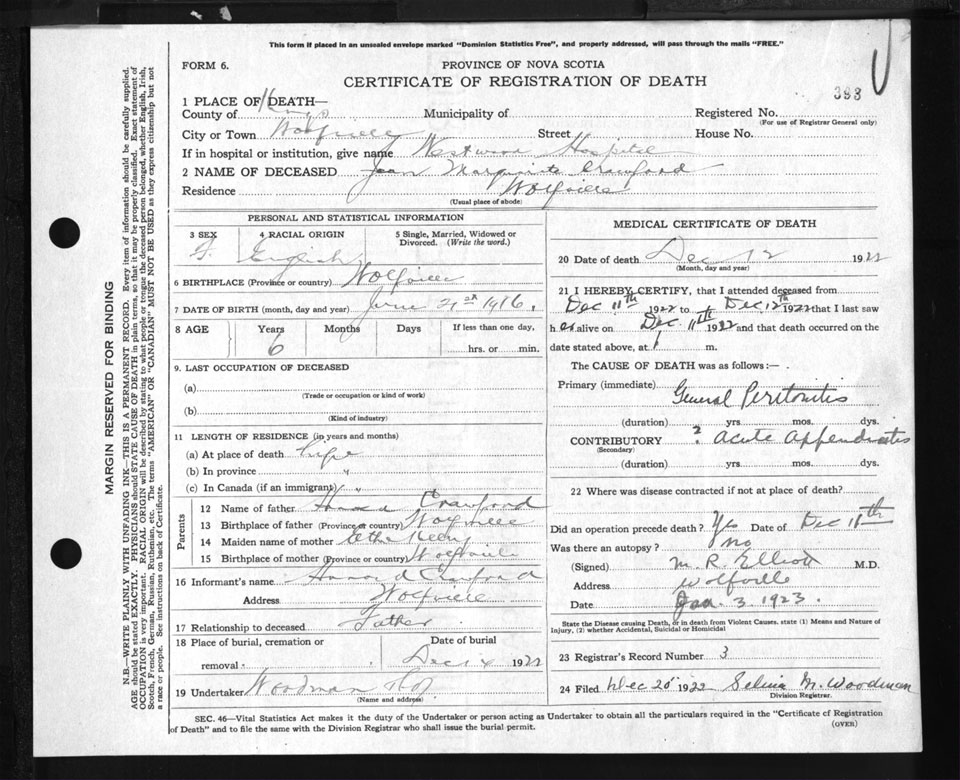 This form if placed in an unsealed envelope marked "Dominion Statistics Free", and properly addressed, will pass through the mails "FREE."
FORM 6.
PROVINCE OF NOVA SCOTIA
CERTIFICATE OF REGISTRATION OF DEATH
393
1 PLACE OF DEATH—
County of Kings Municipality of Registered No.
(For use of Registrar General only)
City or Town Wolfville Street House No.
If in hospital or institution, give name Westwood Hospital
2 NAME OF DECEASED Joan Marguerite Crawford
Residence Wolfville
(Usual place of abode)
PERSONAL AND STATISTICAL INFORMATION
3 SEX 4 RACIAL ORIGIN 5 Single, Married, Widowed or Divorced. (Write the word.)
F. English
6 BIRTHPLACE (Province or country) Wolfville
7 DATE OF BIRTH (month, day and year) June 21st 1916.
8 AGE Years Months Days If less than one day,
6 hrs. or min.
9. LAST OCCUPATION OF DECEASED
(a)
(Trade or occupation or kind of work)
(b)
(Kind of industry)
11 LENGTH OF RESIDENCE (in years and months)
(a) At place of death Life
(b) In province "
(c) In Canada (if an immigrant) "
Parents
12 Name of father Crawford
13 Birthplace of father (Province or country) Wolfville
14 Maiden name of mother
15 Birthplace of mother (Province or country) Wolfville
16 Informant's name Crawford
Address Wolfville
17 Relationship to deceased Father
18 Place of burial, cremation or removal Date of burial
Dec 14 1922
19 Undertaker Woodman
(Name and address)
MEDICAL CERTIFICATE OF DEATH
20 Date of death Dec 12 1922
(Month, day and year)
21 I HEREBY CERTIFY, that I attended deceased from
Dec 11th 1922 to Dec 12th 1922 that I last saw
her alive on Dec 11th 1922 and that death occurred on the
date stated above, at 1 m.
The CAUSE OF DEATH was as follows:—
Primary (immediate) General Peritonitis
(duration) yrs. mos. dys.
CONTRIBUTORY ? Acute Appendicitis
(Secondary)
(duration) yrs. mos. dys.
22 Where was disease contracted if not at place of death?
Did an operation precede death? Yes Date of Dec 11th
Was there an autopsy? no
(Signed) M. R. Elliott M.D.
Address Wolfville
Date Jan. 3. 1923.
State the Disease causing Death, or in death from Violent Causes, state (1) Means and Nature of
Injury, (2) whether Accidental, Suicidal or Homicidal
23 Registrar's Record Number 3
24 Filed Dec 20 1922 Selina M. Woodman
Division Registrar.
SEC. 46—Vital Statistics Act makes it the duty of the Undertaker or person acting as Undertaker to obtain all the particulars required in the "Certificate of Registration
of Death" and to file the same with the Division Registrar who shall issue the burial permit.
(OVER)
MARGIN RESERVED FOR BINDING
N.B.—WRITE PLAINLY WITH UNFADING INK—THIS IS A PERMANENT RECORD. Every item of information should be carefully supplied.
AGE should be stated EXACTLY. PHYSICIANS should STATE CAUSE OF DEATH in plain terms, so that it may be properly classified. Exact statement of
OCCUPATION is very important. RACIAL ORIGIN will be described by stating to what people or tongue the deceased person belonged, whether English, Irish,
Scotch, French, German, Russian, Ruthenian, etc. The terms "AMERICAN" OR "CANADIAN" MUST NOT BE USED as they express citizenship but not
a race or people. See instructions on back of Certificate.